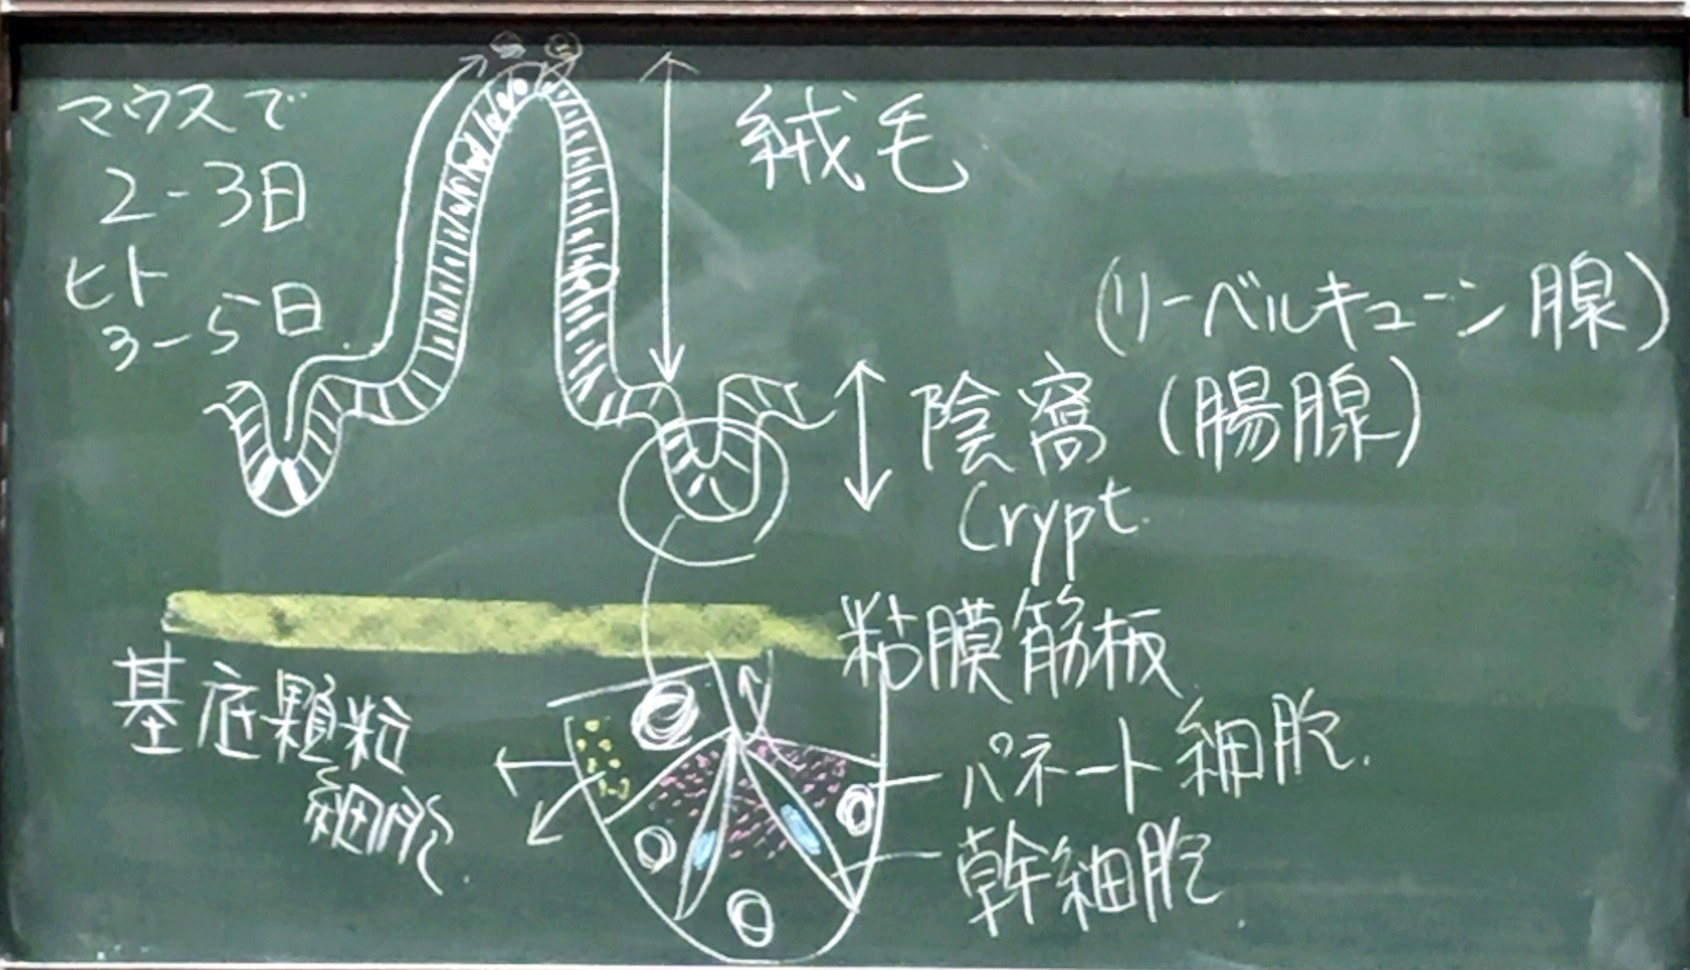 マウスで
2-3日
ヒト
3-5日
絨毛
(リーベルキューン腺)
陰窩(腸腺)
Crypt.
粘膜筋板
基底顆粒
細胞.
パネート細胞.
幹細胞